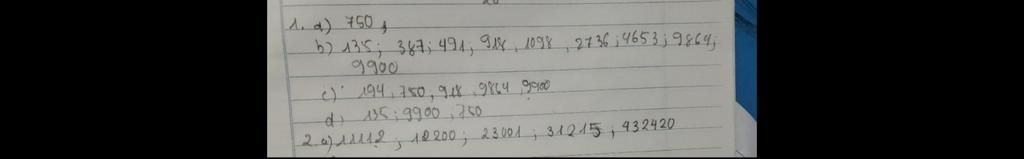 1. a) 750,
b) 135; 387; 491, 918, 1098, 2736; 4653; 9864;
9900
c) 194, 750, 918, 9864, 9900
d) 135; 9900, 750
2. a) 11112; 12200; 23001; 31215; 432420